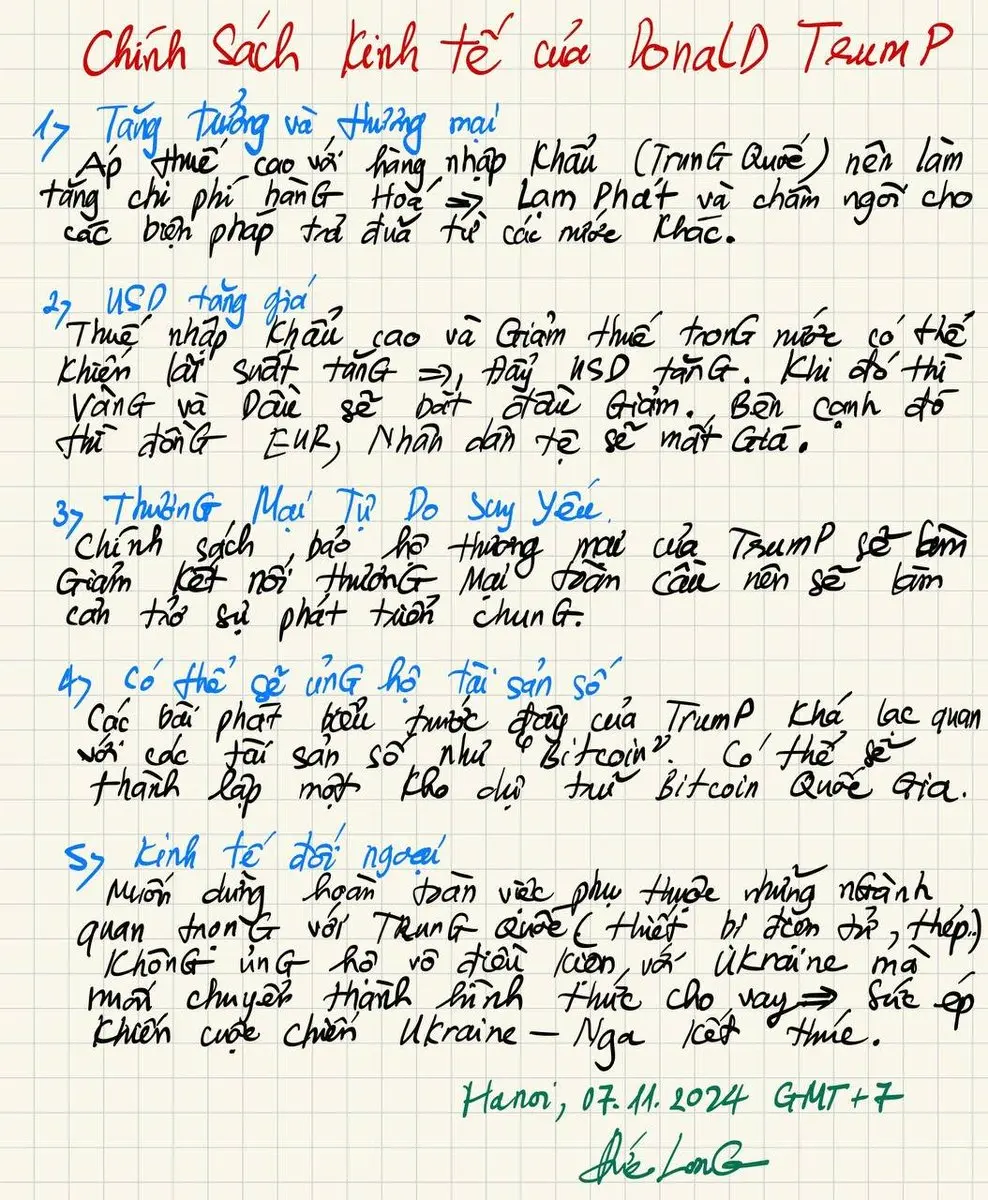 Chính Sách Kinh tế của DonalD TrumP
1> Tăng trưởng và thương mại
Áp thuế cao với hàng nhập Khẩu (TrunG Quốc) nên làm
tăng chi phí hànG Hoá => Lạm Phát và châm ngòi cho
các biện pháp trả đuã từ các nước Khác.
2> USD tăng giá
Thuế nhập Khẩu cao và Giảm thuế tronG nước có thể
Khiến lãi suất tănG =>, Đẩy USD tănG. Khi đó thì
VànG và Dầu sẽ bắt đầu Giảm. Bên cạnh đó
thì đồnG EUR, Nhân dân tệ sẽ mất Giá.
3> ThươnG Mại Tự Do Suy Yếu.
Chính sách bảo hộ thương mại của TrumP sẽ làm
Giảm Kết nối thươnG Mại toàn cầu nên sẽ làm
cản trở sự phát triển chunG.
4> Có thể sẽ ủnG hộ tài sản số
Các bài phát biểu trước đây của TrumP Khá lạc quan
với các tài sản số như "Bitcoin". Có thể sẽ
thành lập một Kho dự trữ Bitcoin Quốc Gia.
5> Kinh tế đối ngoại
Muốn dừng hoàn toàn việc phụ thuộc những nGành
quan trọnG với TRunG Quốc (thiết bị điện tử, thép..)
KhônG ủnG hộ vô điều Kiện với Ukraine mà
muốn chuyển thành hình thức cho vay => Sức ép
Khiến cuộc chiến Ukraine - Nga Kết thúc.
Hanoi, 07.11.2024 GMT+7
LonG